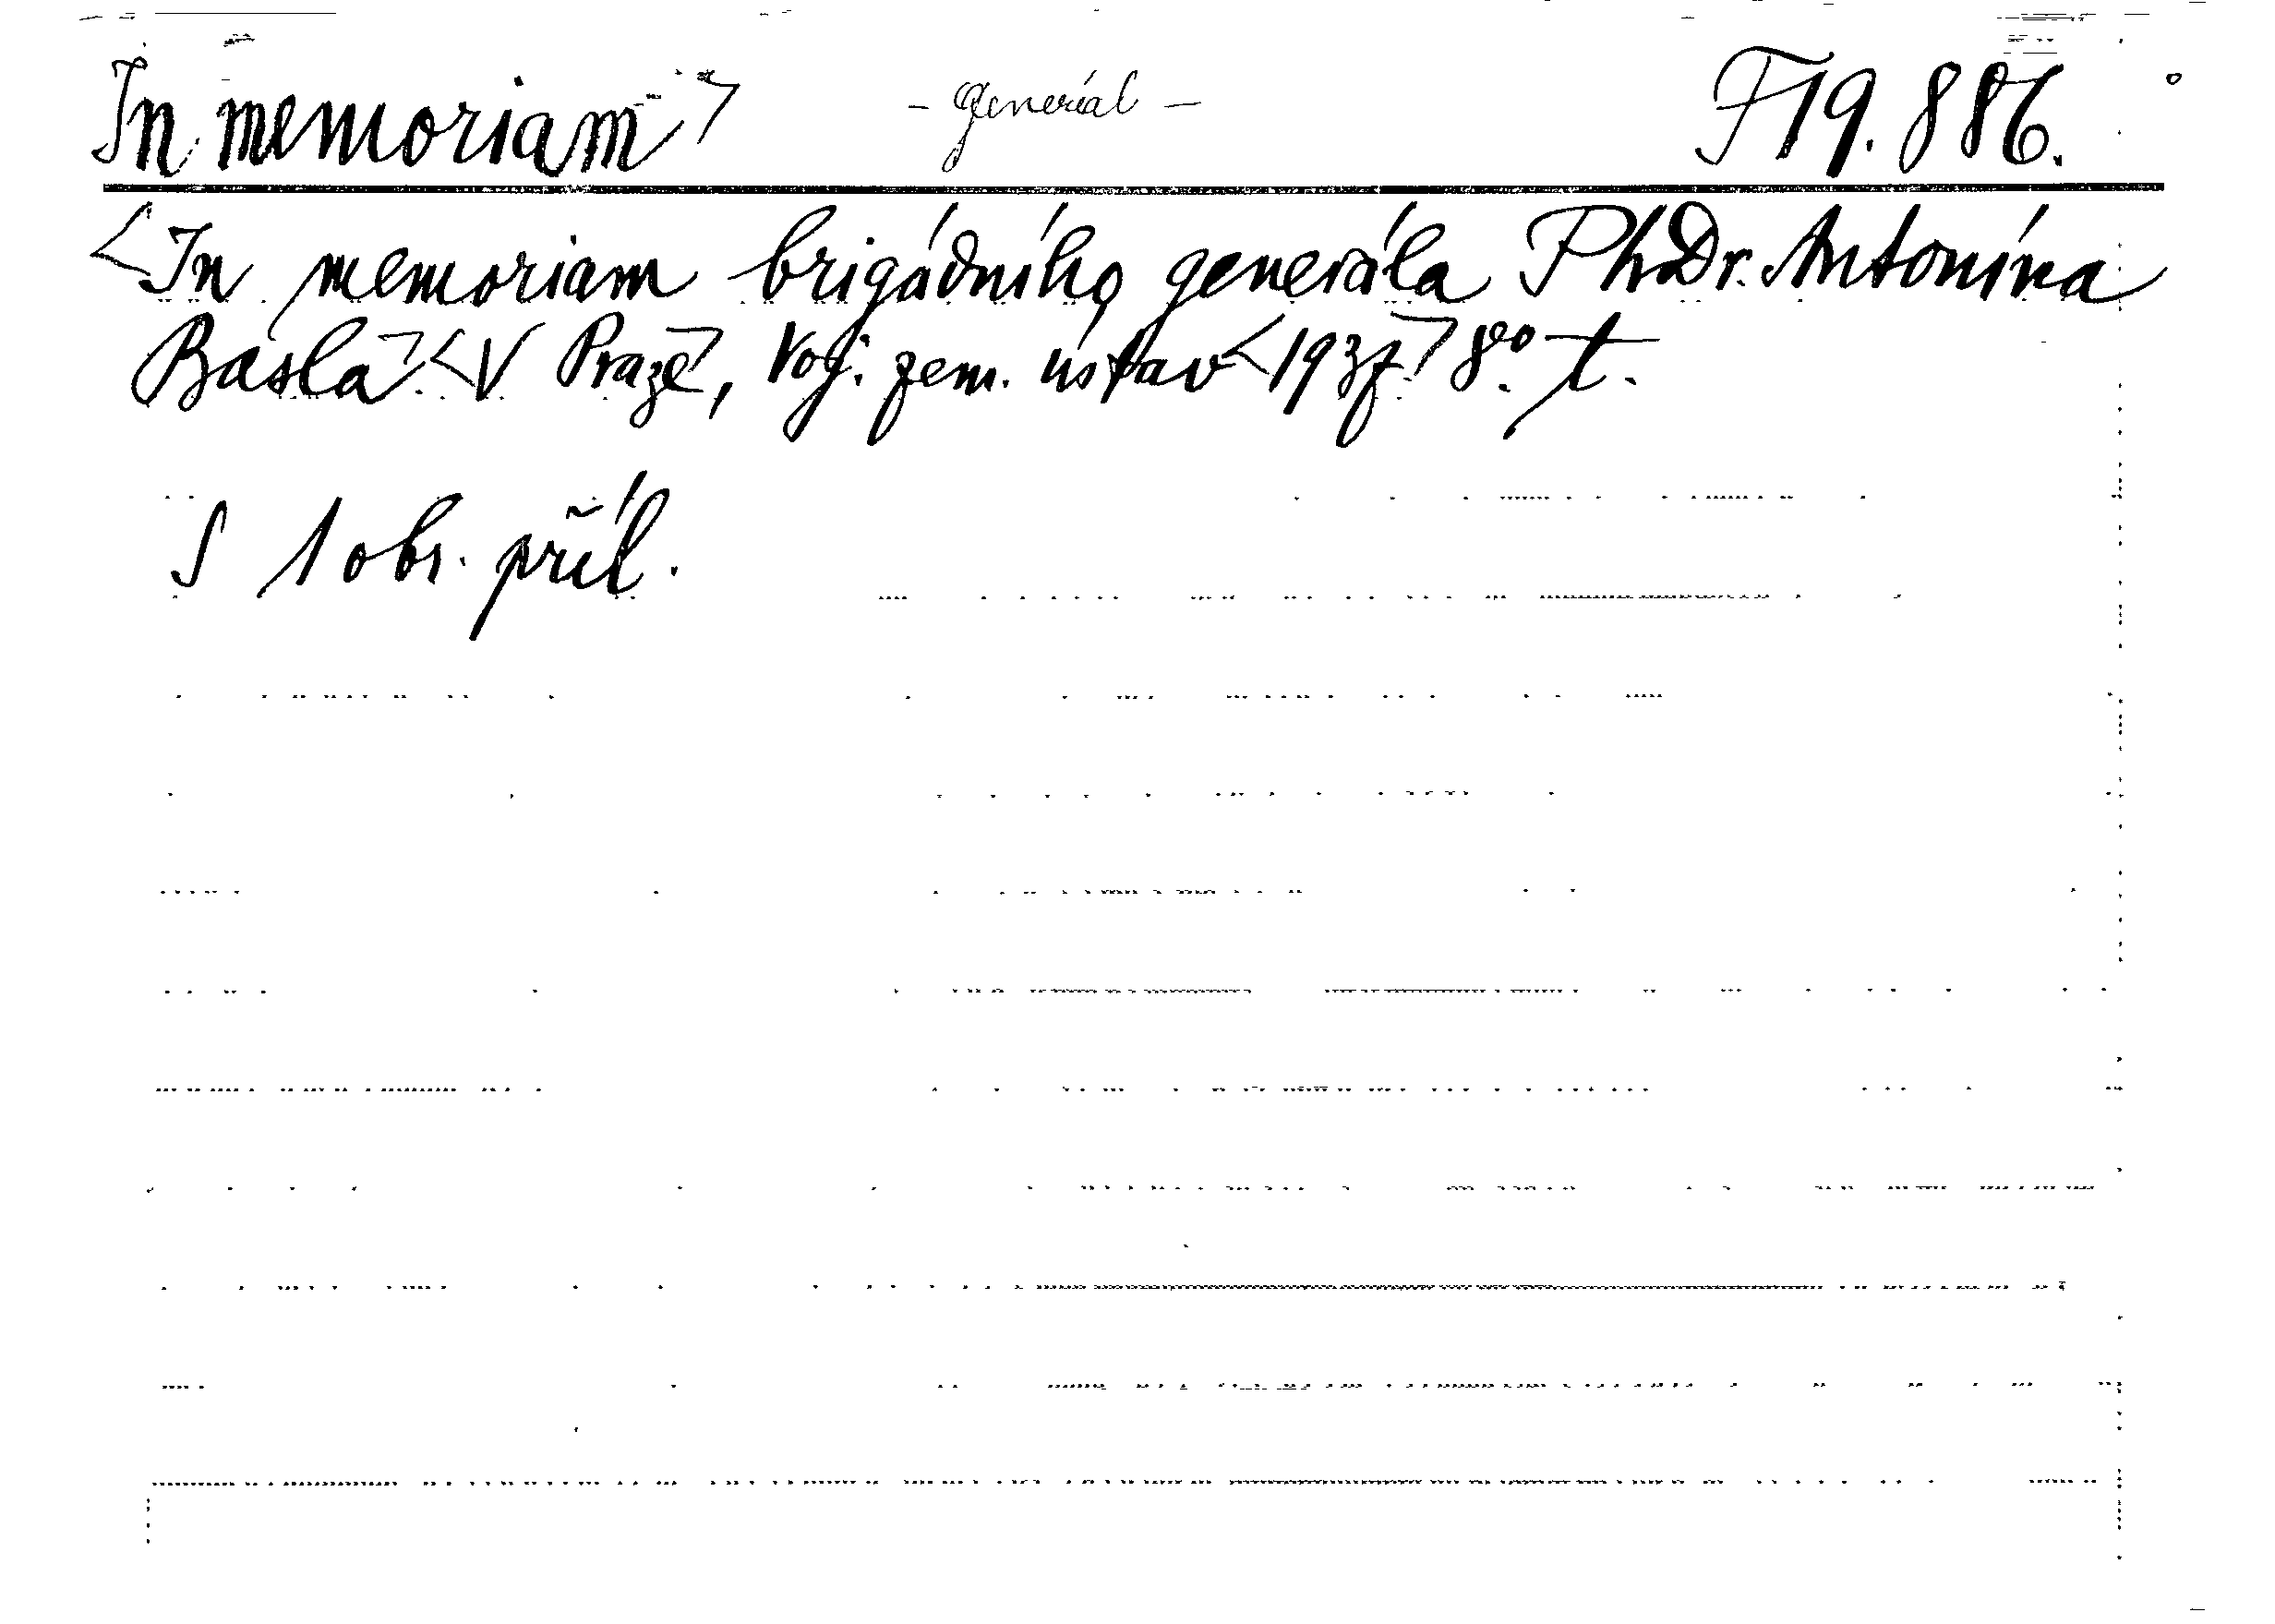 In memoriam> - generál - F 19.886.
<In memoriam brigádního generála PhDr. Antonína
Basla>. <V Praze>, Voj. zem. ústav <1937> 8°. t.
S 1 obr. příl.